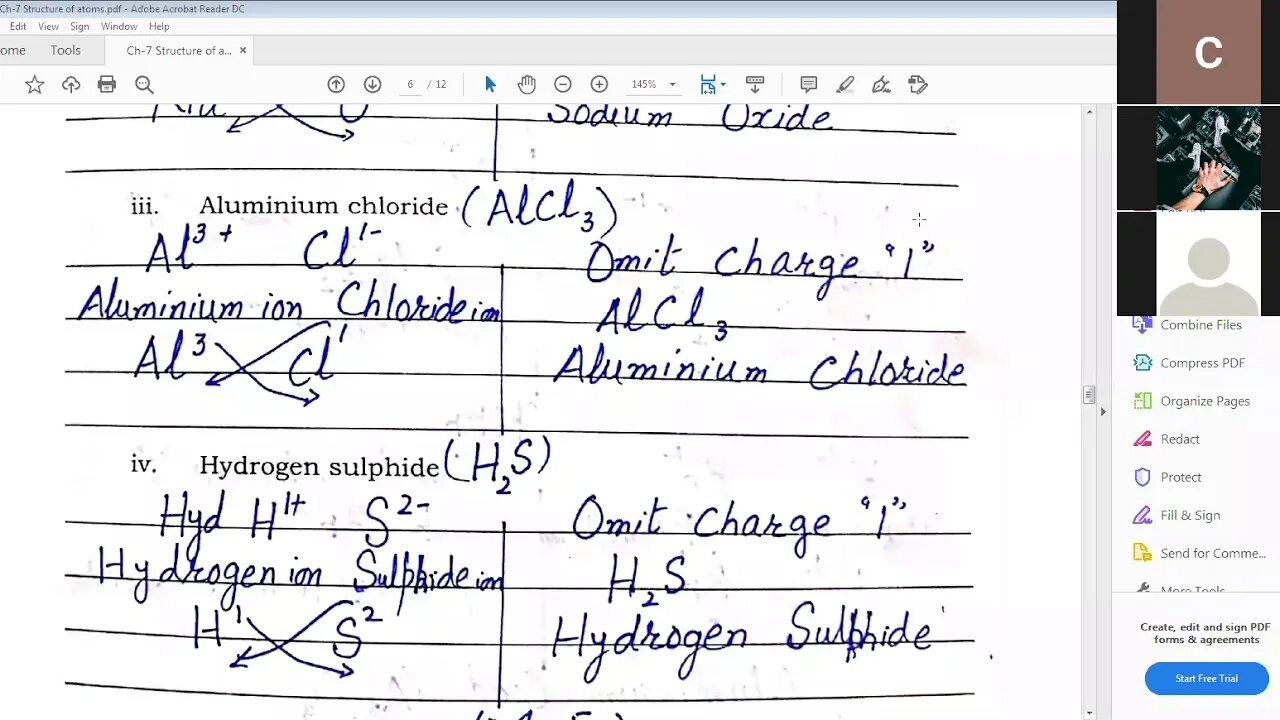 Ch-7 Structure of atoms.pdf - Adobe Acrobat Reader DC
Edit View Sign Window Help
ome Tools Ch-7 Structure of a... ×
6 / 12 145%
C
Sodium Oxide
iii. Aluminium chloride (AlCl₃)
Al³⁺ Cl¹⁻ Omit Charge "1"
Aluminium ion Chloride ion AlCl₃
Al³ Cl¹ Aluminium Chloride
iv. Hydrogen sulphide (H₂S)
Hyd H¹⁺ S²⁻ Omit Charge "1"
Hydrogen ion Sulphide ion H₂S
H¹ S² Hydrogen Sulphide
Combine Files
Compress PDF
Organize Pages
Redact
Protect
Fill & Sign
Send for Comme...
More Tools
Create, edit and sign PDF
forms & agreements
Start Free Trial